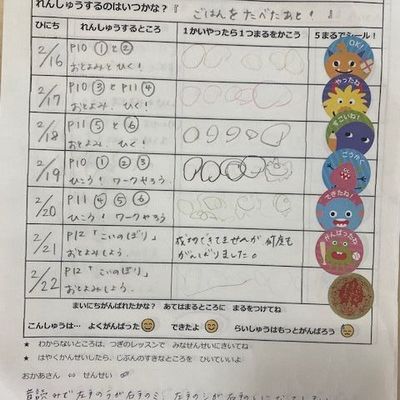 れんしゅうするのはいつかな？『ごはんをたべたあと！』
ひにち れんしゅうするところ １かいやったら１つまるをかこう ５まるでシール！
2/16 P10 ①と② おとよみとひく！
OK!
2/17 P10 ③とP11④ おとよみ、ひく！
やったね
2/18 P11 ⑤と⑥ おとよみ、ひく！
すごいね！
2/19 P10 ① ② ③ ひこう！ワークやろう
ごうかく
2/20 P11 ④ ⑤ ⑥ ひこう！ワークやろう
できたね！
2/21 P12「こいのぼり」 おとよみしよう
成功できてませんが何度もがんばりました。
がんばったね
2/22 P12「こいのぼり」 おとよみしよう。
まいにちがんばれたかな？ あてはまるところに まるをつけてね
こんしゅうは… よくがんばった できたよ らいしゅうはもっとがんばろう
★ わからないところは、つぎのレッスンで みなせんせいにきいてね
★ はやくかんせいしたら、じぶんのすきなところを ひいていいよ
おかあさん ⇔ せんせい
音読みで左手のラが右手のミ、左手のシが右手の